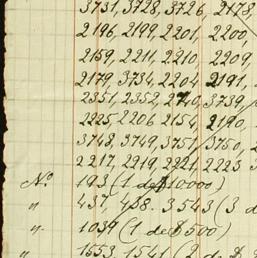 3731, 3728, 3726, 2178,
2196, 2199, 2201, 2200,
2159, 2211, 2210, 2209,
2179, 3734, 2204, 2191,
2351, 2352, 3739,
2225, 2206, 2154, 2190,
3748, 3749, 3751, 3750,
2217, 2919, 2221, 2223
No 193 (1 de $10000)
" 437, 438. 3543 (3 d
" 1039 (1 de $500)
" 1553, 1541 (2 de $